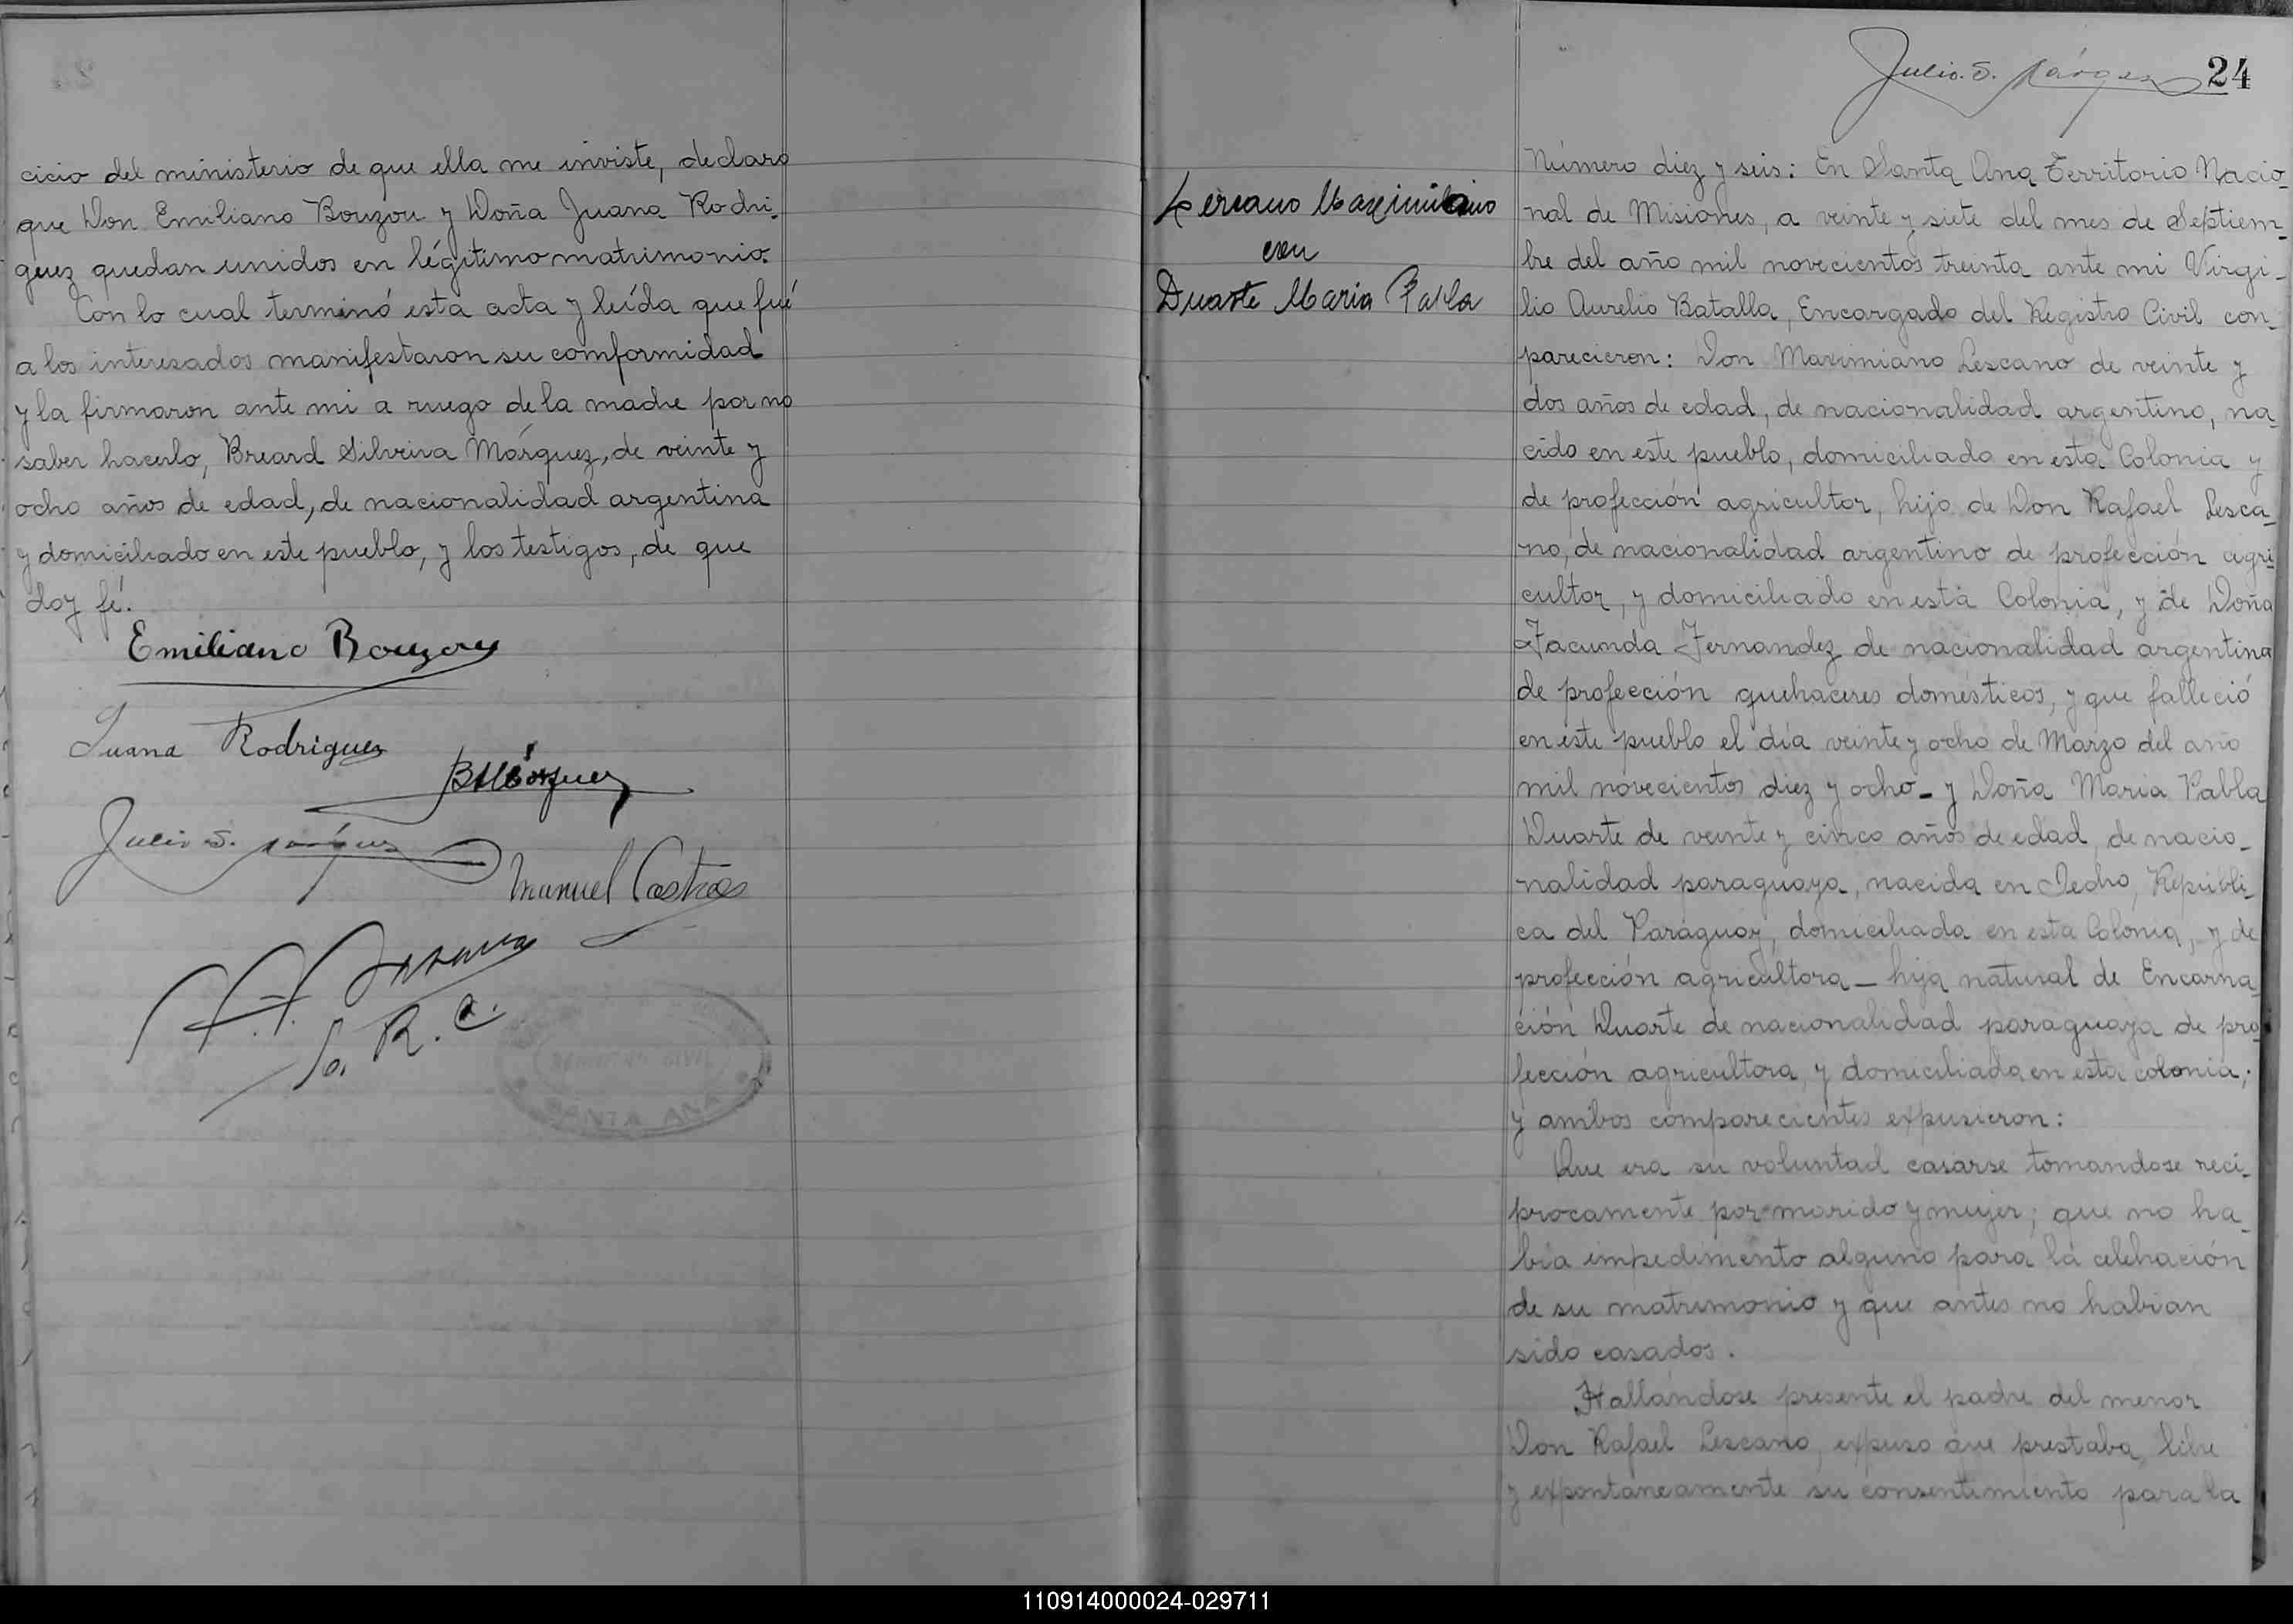 cicio del ministerio de que ella me inviste, declaro
que Don Emiliano Bouzou y Doña Juana Rodri-
guez quedan unidos en légitimo matrimonio.
Con lo cual terminó esta acta y leída que fué
a los interesados manifestaron su comformidad
y la firmaron ante mi a ruego de la madre por no
saber hacerlo, Breard Silveira Márquez, de veinte y
ocho años de edad, de nacionalidad argentina
y domiciliado en este pueblo, y los testigos, de que
doy fé.
Emiliano Bouzou
Juana Rodriguez
BMárquez
Julio S. Márquez
Manuel Castros
R. C.
REGISTRO CIVIL
SANTA ANA
Lescano Maximiliano
con
Duarte Maria Pabla
Julio. S. Márquez 24
Número diez y seis: En Santa Ana Territorio Nacio-
nal de Misiones, a veinte y siete del mes de Septiem-
bre del año mil novecientos treinta ante mi Virgi-
lio Aurelio Batalla, Encargado del Registro Civil con-
parecieron: Don Maximiano Lescano de veinte y
dos años de edad, de nacionalidad argentino, na-
cido en este pueblo, domiciliado en esta Colonia y
de profección agricultor, hijo de Don Rafael Lesca-
no, de nacionalidad argentino de profección agri-
cultor, y domiciliado en esta Colonia, y de Doña
Facunda Fernandez de nacionalidad argentina
de profección quehaceres domésticos, y que falleció
en este pueblo el día veinte y ocho de Marzo del año
mil novecientos diez y ocho - y Doña Maria Pabla
Duarte de veinte y cinco años de edad, de nacio-
nalidad paraguaya, nacida en Repúbli-
ca del Paraguay, domiciliada en esta Colonia, y de
profección agricultora - hija natural de Encarna-
ción Duarte de nacionalidad paraguaya de pro-
fección agricultora, y domiciliada en esta colonia;
y ambos comparecientes expusieron:
Que era su voluntad casarse tomandose reci-
procamente por marido y mujer; que no ha-
bía impedimento alguno para la celebración
de su matrimonio y que antes no habian
sido casados.
Hallándose presente el padre del menor
Don Rafael Lescano, expuso que prestaba, libre
y expontáneamente su consentimiento para la
110914000024-029711